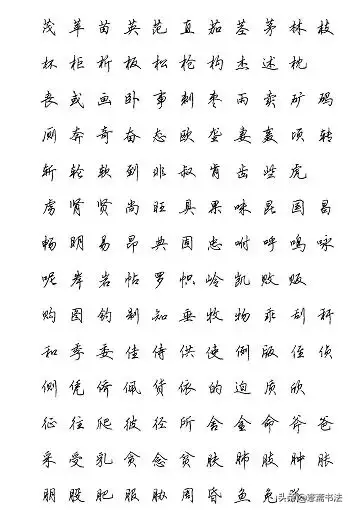 茂 苹 苗 英 范 直 茄 茎 茅 林 枝
杯 柜 析 板 松 枪 构 杰 述 枕
丧 或 画 卧 事 刺 枣 雨 卖 矿 码
厕 奔 奇 奋 态 欧 垄 妻 轰 顷 转
斩 轮 软 到 非 叔 肯 齿 些 虎
虏 肾 贤 尚 旺 具 果 味 昆 国 昌
畅 明 易 昂 典 固 忠 咐 呼 鸣 咏
呢 岸 岩 帖 罗 帜 岭 凯 败 贩
购 图 钓 制 知 垂 牧 物 乖 刮 秆
和 季 委 佳 侍 供 使 例 版 侄 侦
侧 凭 侨 佩 货 依 的 迫 质 欣
征 往 爬 彼 径 所 舍 金 命 斧 爸
采 受 乳 贪 念 贫 肤 肺 肢 肿 胀
朋 股 肥 服 胁 周 昏 鱼 兔
书法